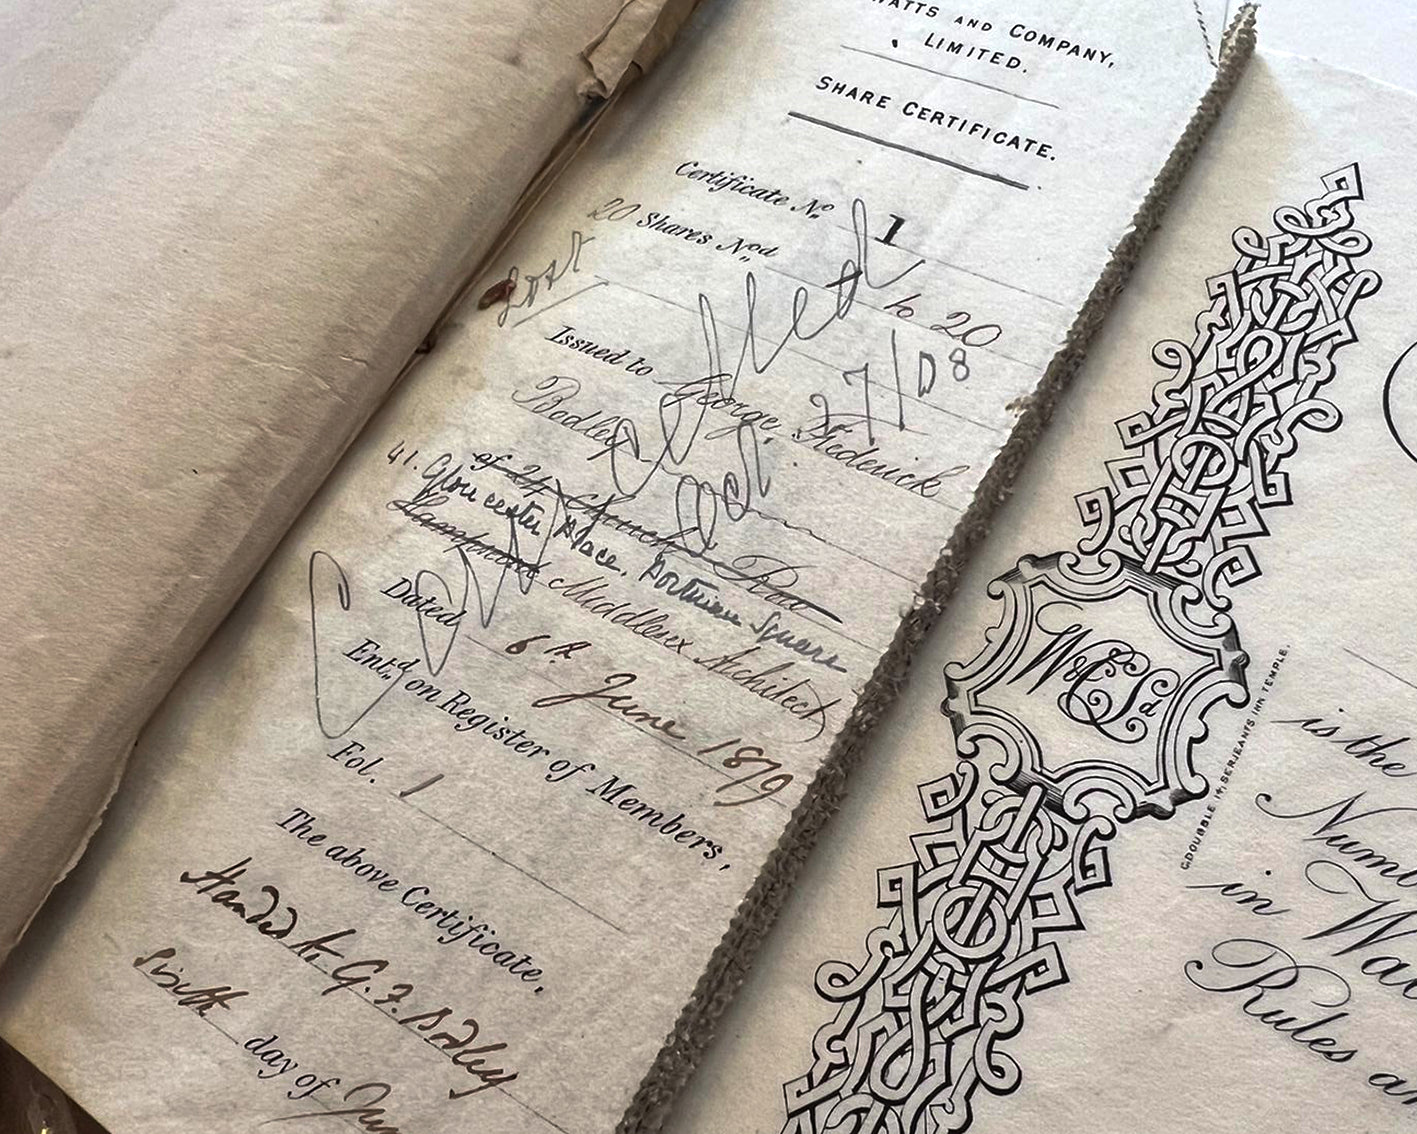 WATTS AND COMPANY,
LIMITED.
SHARE CERTIFICATE.
Certificate No. 1
20 Shares Nod
1 to 20
Lost
27/10/8
Issued to George Frederick
Bodley
of 24 Church Row
41. Gloucester Place, Portman Square
Hampstead Middlesex Architect
Cancelled
Dated 6th June 1879
Entd. on Register of Members,
Fol. 1
The above Certificate,
Handed to G. F. Bodley
sixth day of Jun
W&CoLd
G. DOUBBLE, 14, SERJEANTS INN TEMPLE.
is the
Numb
in Wat
Rules an